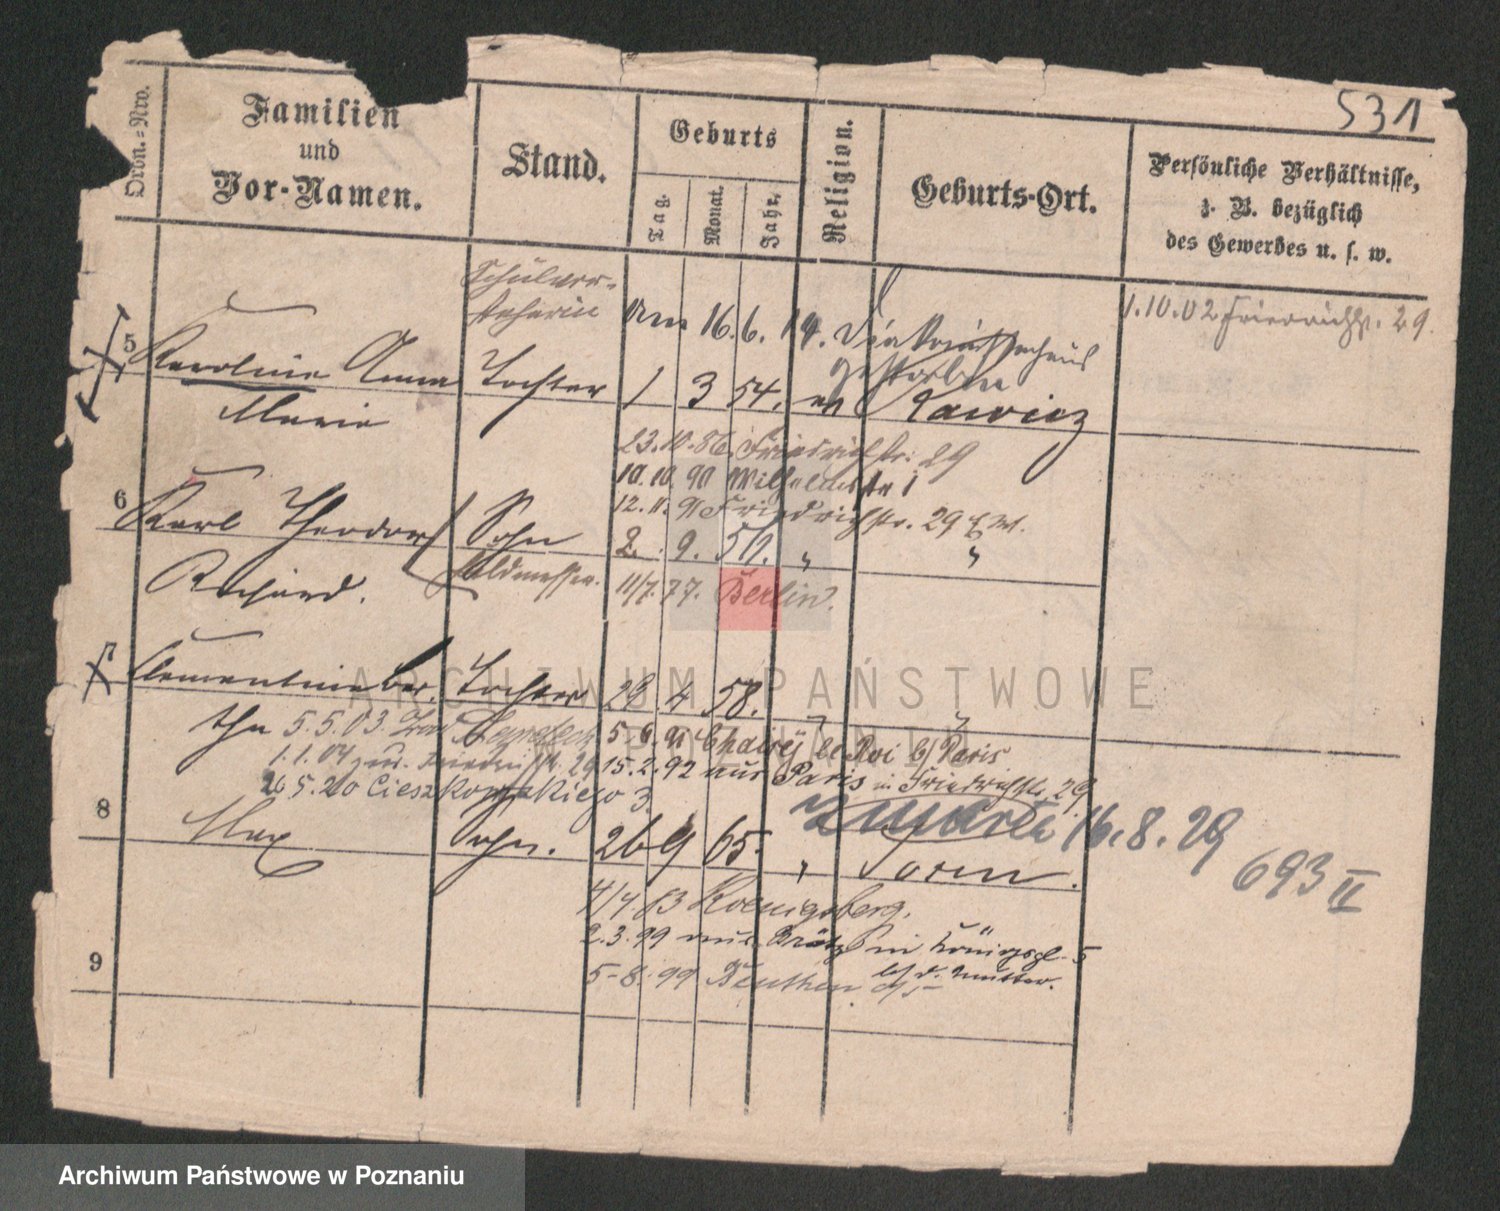 531
Ordn.=Nro.
Familien
und
Vor-Namen.
Stand.
Geburts
Tag.
Monat.
Jahr.
Religion.
Geburts-Ort.
Persönliche Verhältnisse,
z. B. bezüglich
des Gewerbes u. s. w.
Schulvor-
steherin
am 16.6.14. Diakonissenhaus
gestorben
1.10.02 Friedrichstr. 29.
5 Karoline Anna Tochter 1 3 54. ev Rawicz
Marie
23.10.86. Friedrichstr. 29
10.10.90 Wilhelmstr 1
12.11.91 Friedrichstr. 29
6 Karl Theodor Sohn 2. 9. 56. " "
Richard. Feldmesser. 11/7.77. Berlin.
7 Clementine Tochter 23 4 58. " "
5.5.03. 5.6.91 le Roi b/ Paris
1.1.04 29 15.2.92 aus Paris in Friedrichstr. 29
26.5.20 Cieszkowskiego 3.
zmarła 16.8.29
693 II
8 Max Sohn. 26 9 65. "
4/4 83 Koenigsberg.
2.3.99 aus in Königspl. 5
b/ d. Mutter.
5-8.99 Beuthen
9
ARCHIWUM PAŃSTWOWE
W POZNANIU
Archiwum Państwowe w Poznaniu